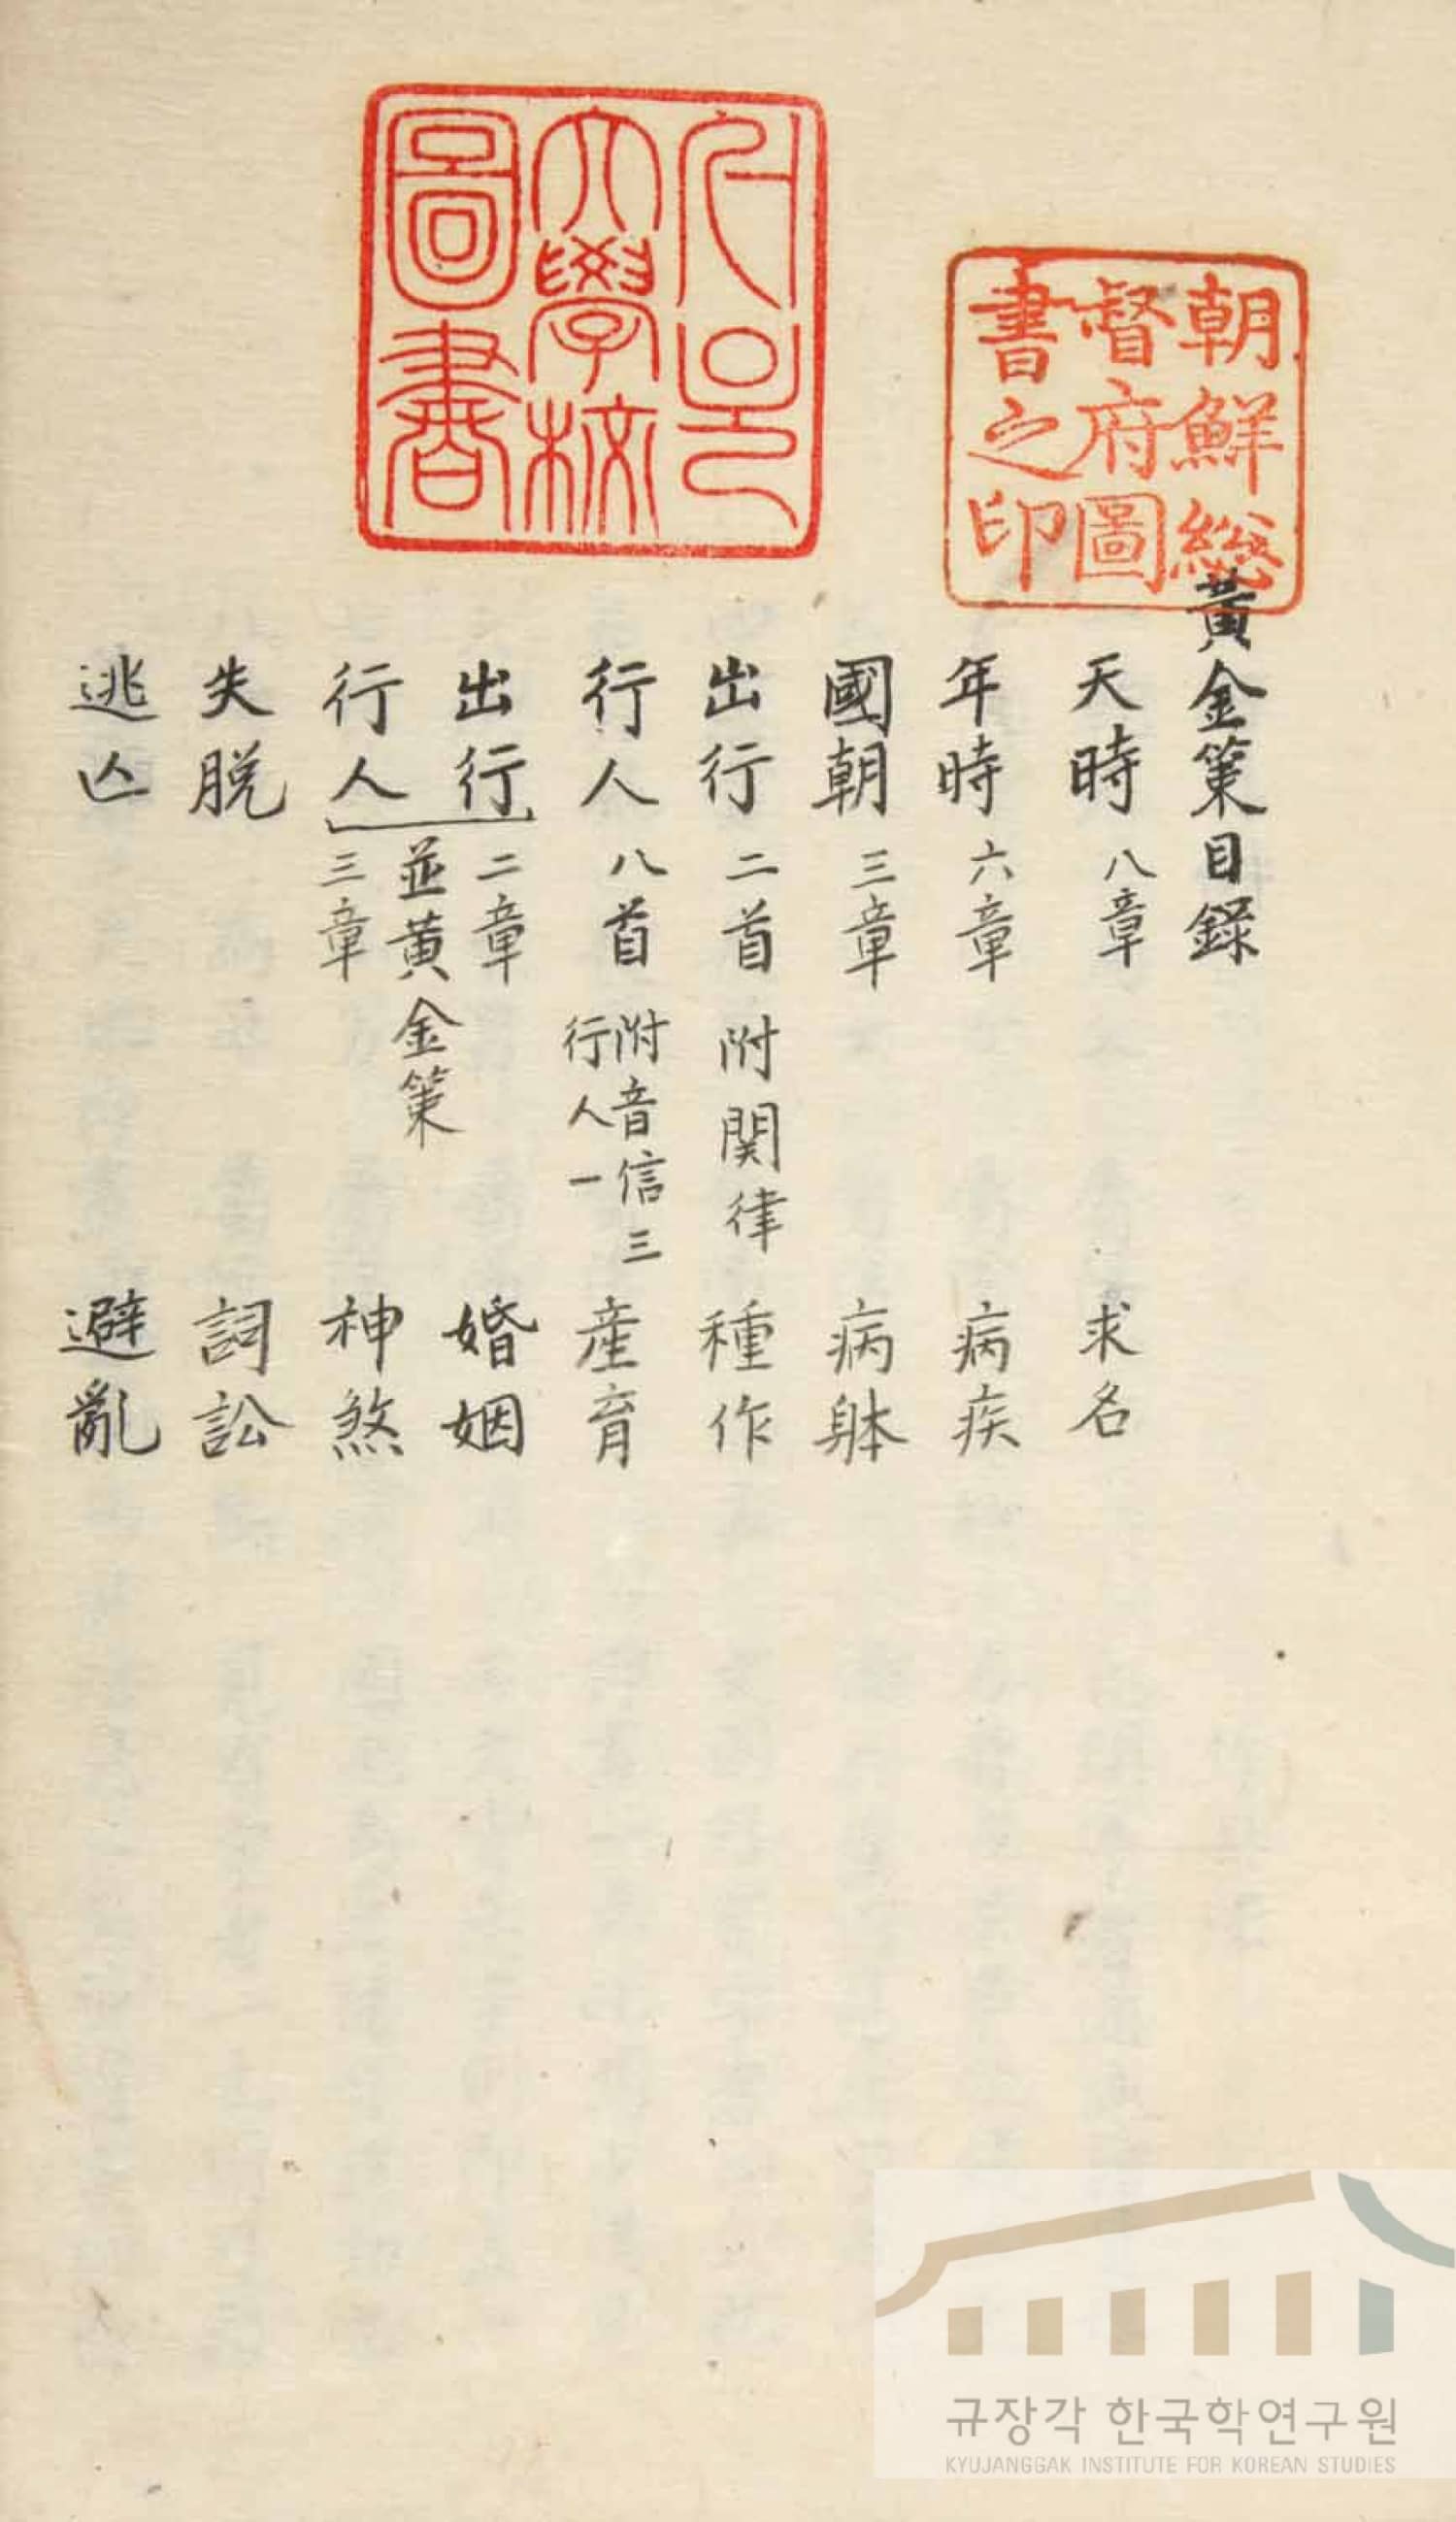 朝鮮総
督府圖
書之印
서울
大學校
圖書
黄金策目錄
天時 八章 求名
年時 六章 病疾
國朝 三章 病躰
出行 二首 附関律 種作
行人 八首 附音信三 産育
行人一
出行 二章 婚姻
並黄金策
行人 三章 神煞
失脱 詞訟
逃亾 避亂
규장각 한국학연구원
KYUJANGGAK INSTITUTE FOR KOREAN STUDIES